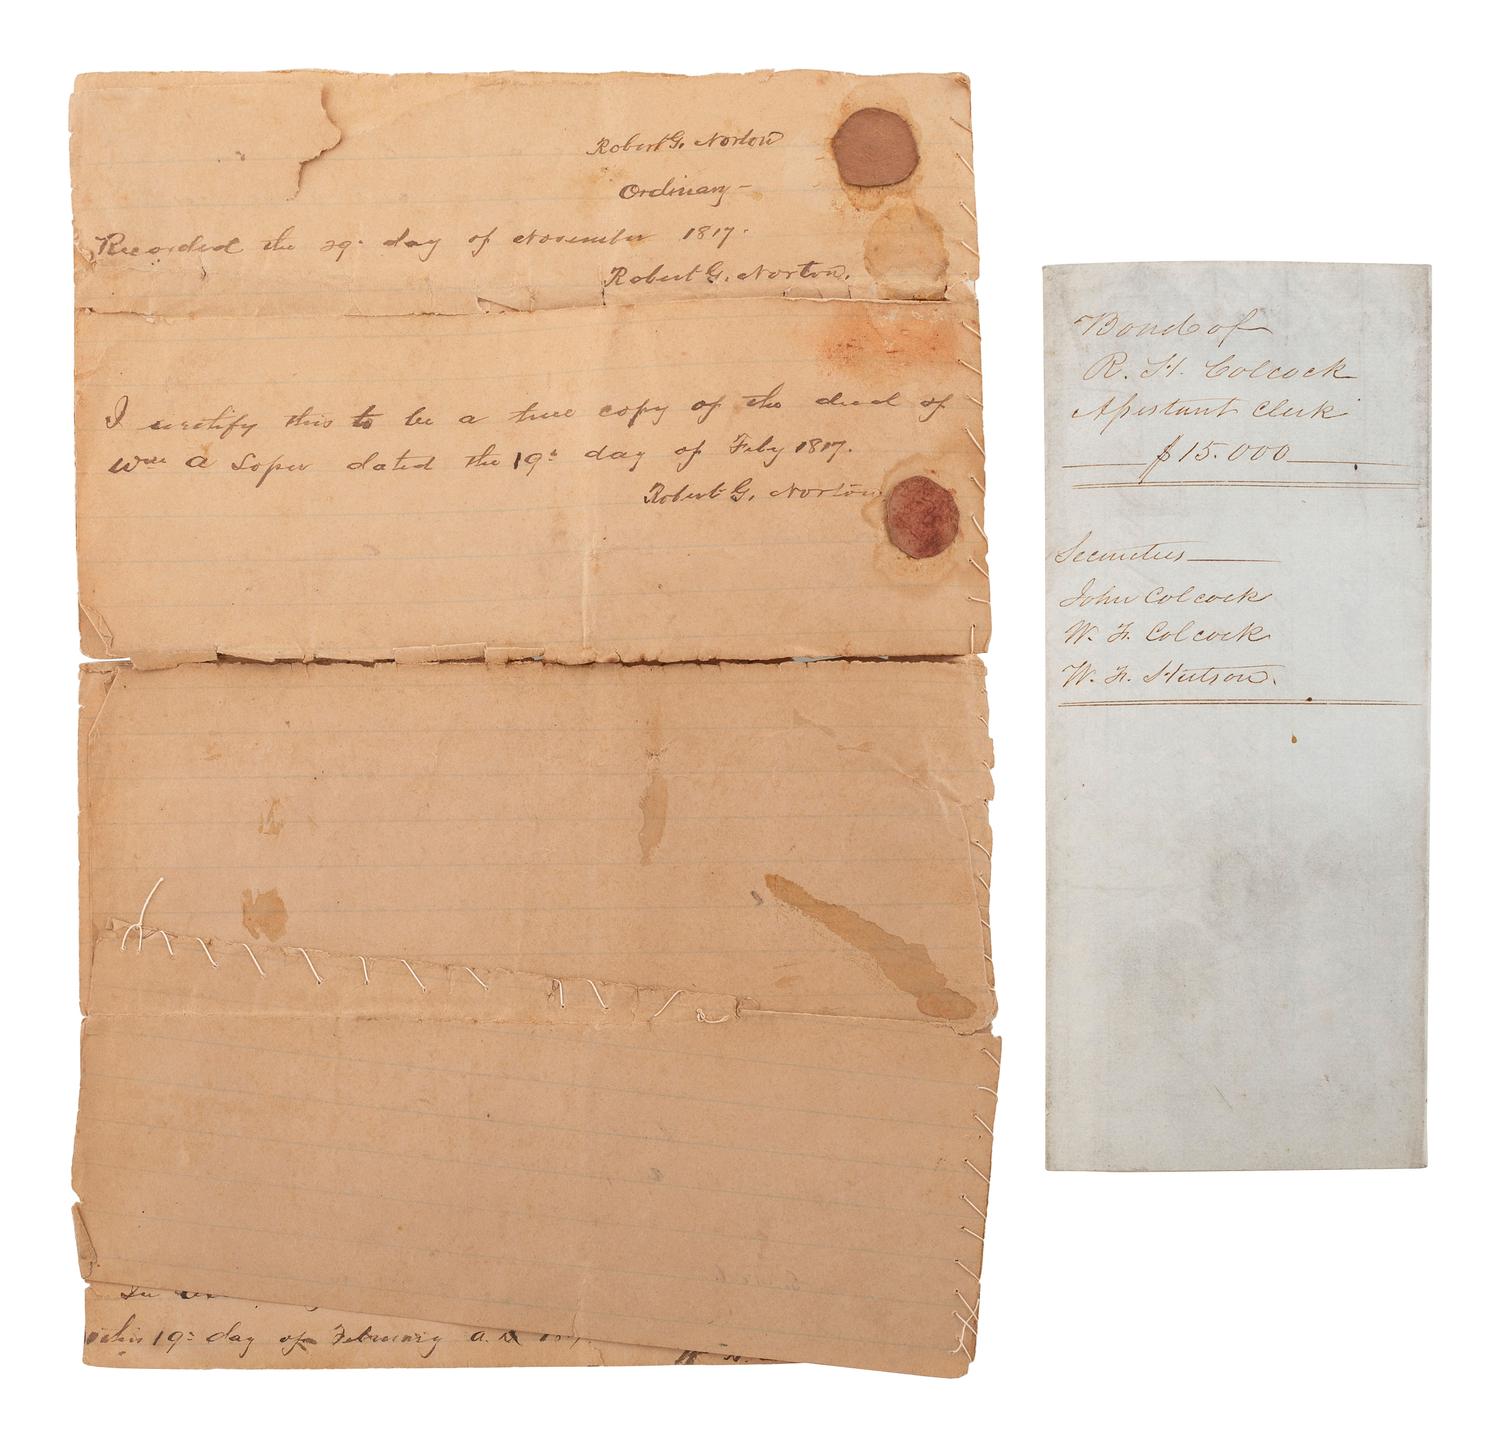 Robert G. Norton
Ordinary -
Recorded the 29. day of November 1817.
Robert G. Norton.
I certify this to be a true copy of the deed of
Wm A Soper dated the 19th day of Feby 1817.
Robert G. Norton
this 19th day of February A. D.
Bond of
R. H. Colcock
Assistant Clerk
$15.000
Securities
John Colcock
W. F. Colcock
W. F. Hutson.